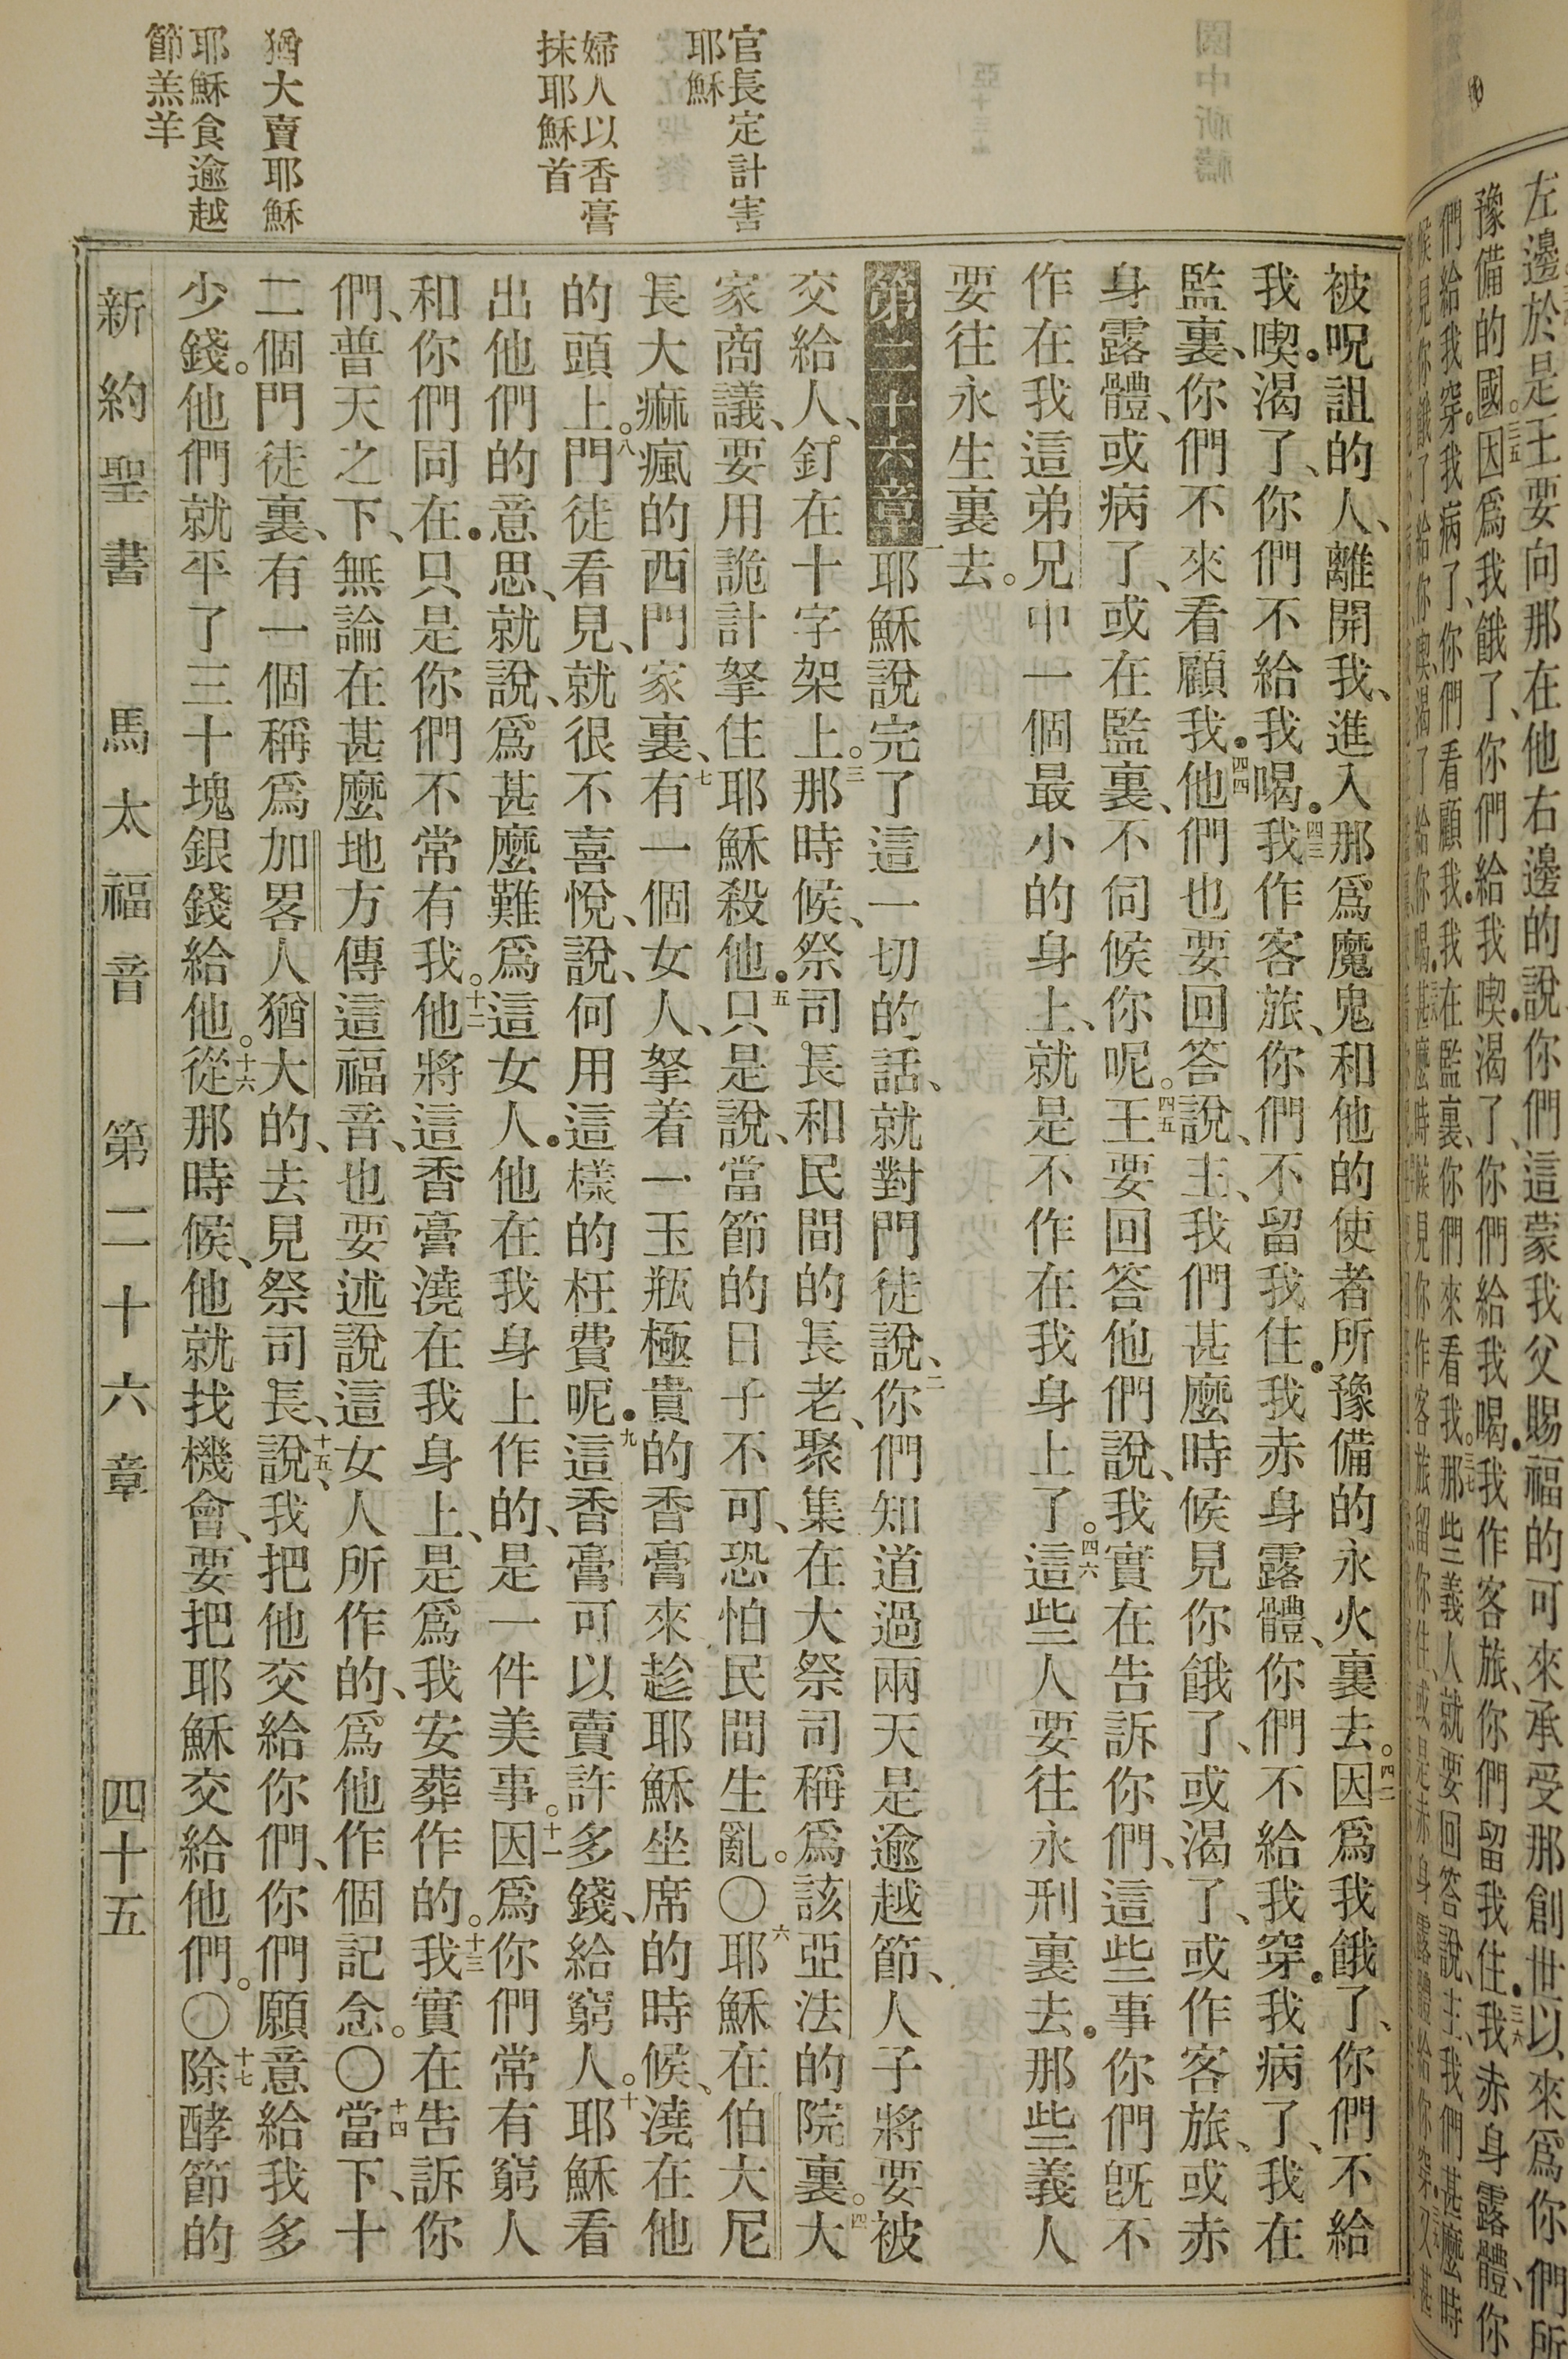 左邊於是王要向那在他右邊的說你們這蒙我父賜福的可來承受那創世以來爲你們所
豫備的國。三五因爲我餓了、你們給我喫。渴了、你們給我喝。我作客旅、你們留我住。三六我赤身露體、你
們給我穿。我病了、你們看顧我。我在監裏、你們來看我。三七那些義人就要回答說、主、我們甚麼時
官長定計害
耶穌
婦人以香膏
抹耶穌首
猶大賣耶穌
耶穌食逾越
節羔羊
被呪詛的人、離開我、進入那爲魔鬼和他的使者所豫備的永火裏去。四二因爲我餓了、你們不給
我喫。渴了、你們不給我喝。四三我作客旅、你們不留我住。我赤身露體、你們不給我穿。我病了、我在
監裏、你們不來看顧我。四四他們也要回答說、主、我們甚麼時候見你餓了、或渴了、或作客旅、或赤
身露體、或病了、或在監裏、不伺候你呢。四五王要回答他們說、我實在告訴你們、這些事你們旣不
作在我這弟兄中一個最小的身上、就是不作在我身上了。四六這些人要往永刑裏去。那些義人
要往永生裏去。
第二十六章一耶穌說完了這一切的話、就對門徒說、二你們知道過兩天是逾越節、人子將要被
交給人、釘在十字架上。三那時候、祭司長和民間的長老、聚集在大祭司稱爲該亞法的院裏。四大
家商議、要用詭計拏住耶穌殺他。五只是說、當節的日子不可、恐怕民間生亂。〇六耶穌在伯大尼
長大痲瘋的西門家裏、七有一個女人、拏着一玉瓶極貴的香膏來、趁耶穌坐席的時候、澆在他
的頭上。八門徒看見、就很不喜悅、說、何用這樣的枉費呢。九這香膏可以賣許多錢、給窮人。十耶穌看
出他們的意思、就說、爲甚麼難爲這女人。他在我身上作的、是一件美事。十一因爲你們常有窮人
和你們同在。只是你們不常有我。十二他將這香膏澆在我身上、是爲我安葬作的。十三我實在告訴你
們、普天之下、無論在甚麼地方傳這福音、也要述說這女人所作的、爲他作個記念。〇十四當下、十
二個門徒裏、有一個稱爲加畧人猶大的、去見祭司長、十五說、我把他交給你們、你們願意給我多
少錢。他們就平了三十塊銀錢給他。十六從那時候、他就找機會、要把耶穌交給他們。〇十七除酵節的
新約聖書　馬太福音　第二十六章　四十五